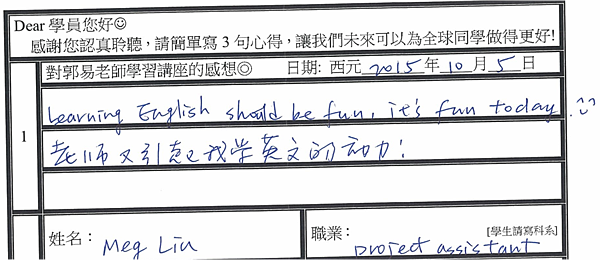 Dear 學員您好☺
感謝您認真聆聽，請簡單寫 3 句心得，讓我們未來可以為全球同學做得更好!
對郭易老師學習講座的感想◎ 日期: 西元 2015 年 10 月 5 日
1
Learning English should be fun, it's fun today.
老师又引起我学英文的动力!
姓名： Meg Liu 職業： [學生請寫科系] project assistant